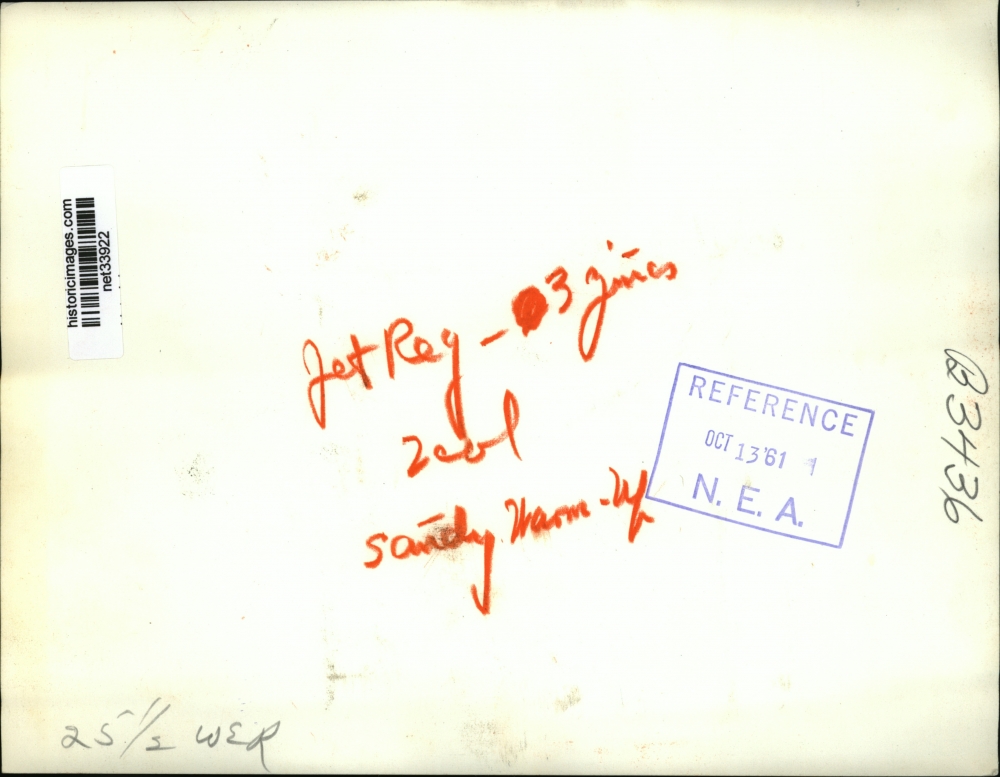 historicimages.com
net33922
Jet Reg - 3 zincs
2 col
Sandy Warm-Up
REFERENCE
OCT 13 '61
N. E. A.
B3436
25 1/2 WER